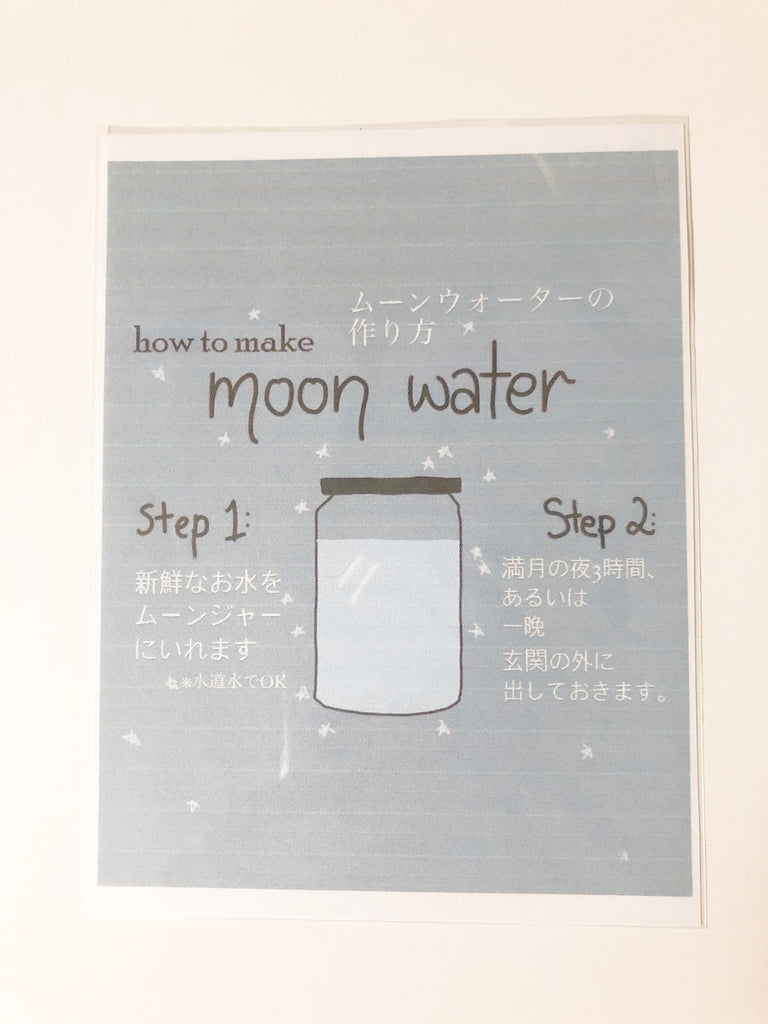 ムーンウォーターの
作り方
how to make
moon water
Step 1:
新鮮なお水を
ムーンジャー
にいれます
※水道水でOK
Step 2:
満月の夜3時間、
あるいは
一晩
玄関の外に
出しておきます。